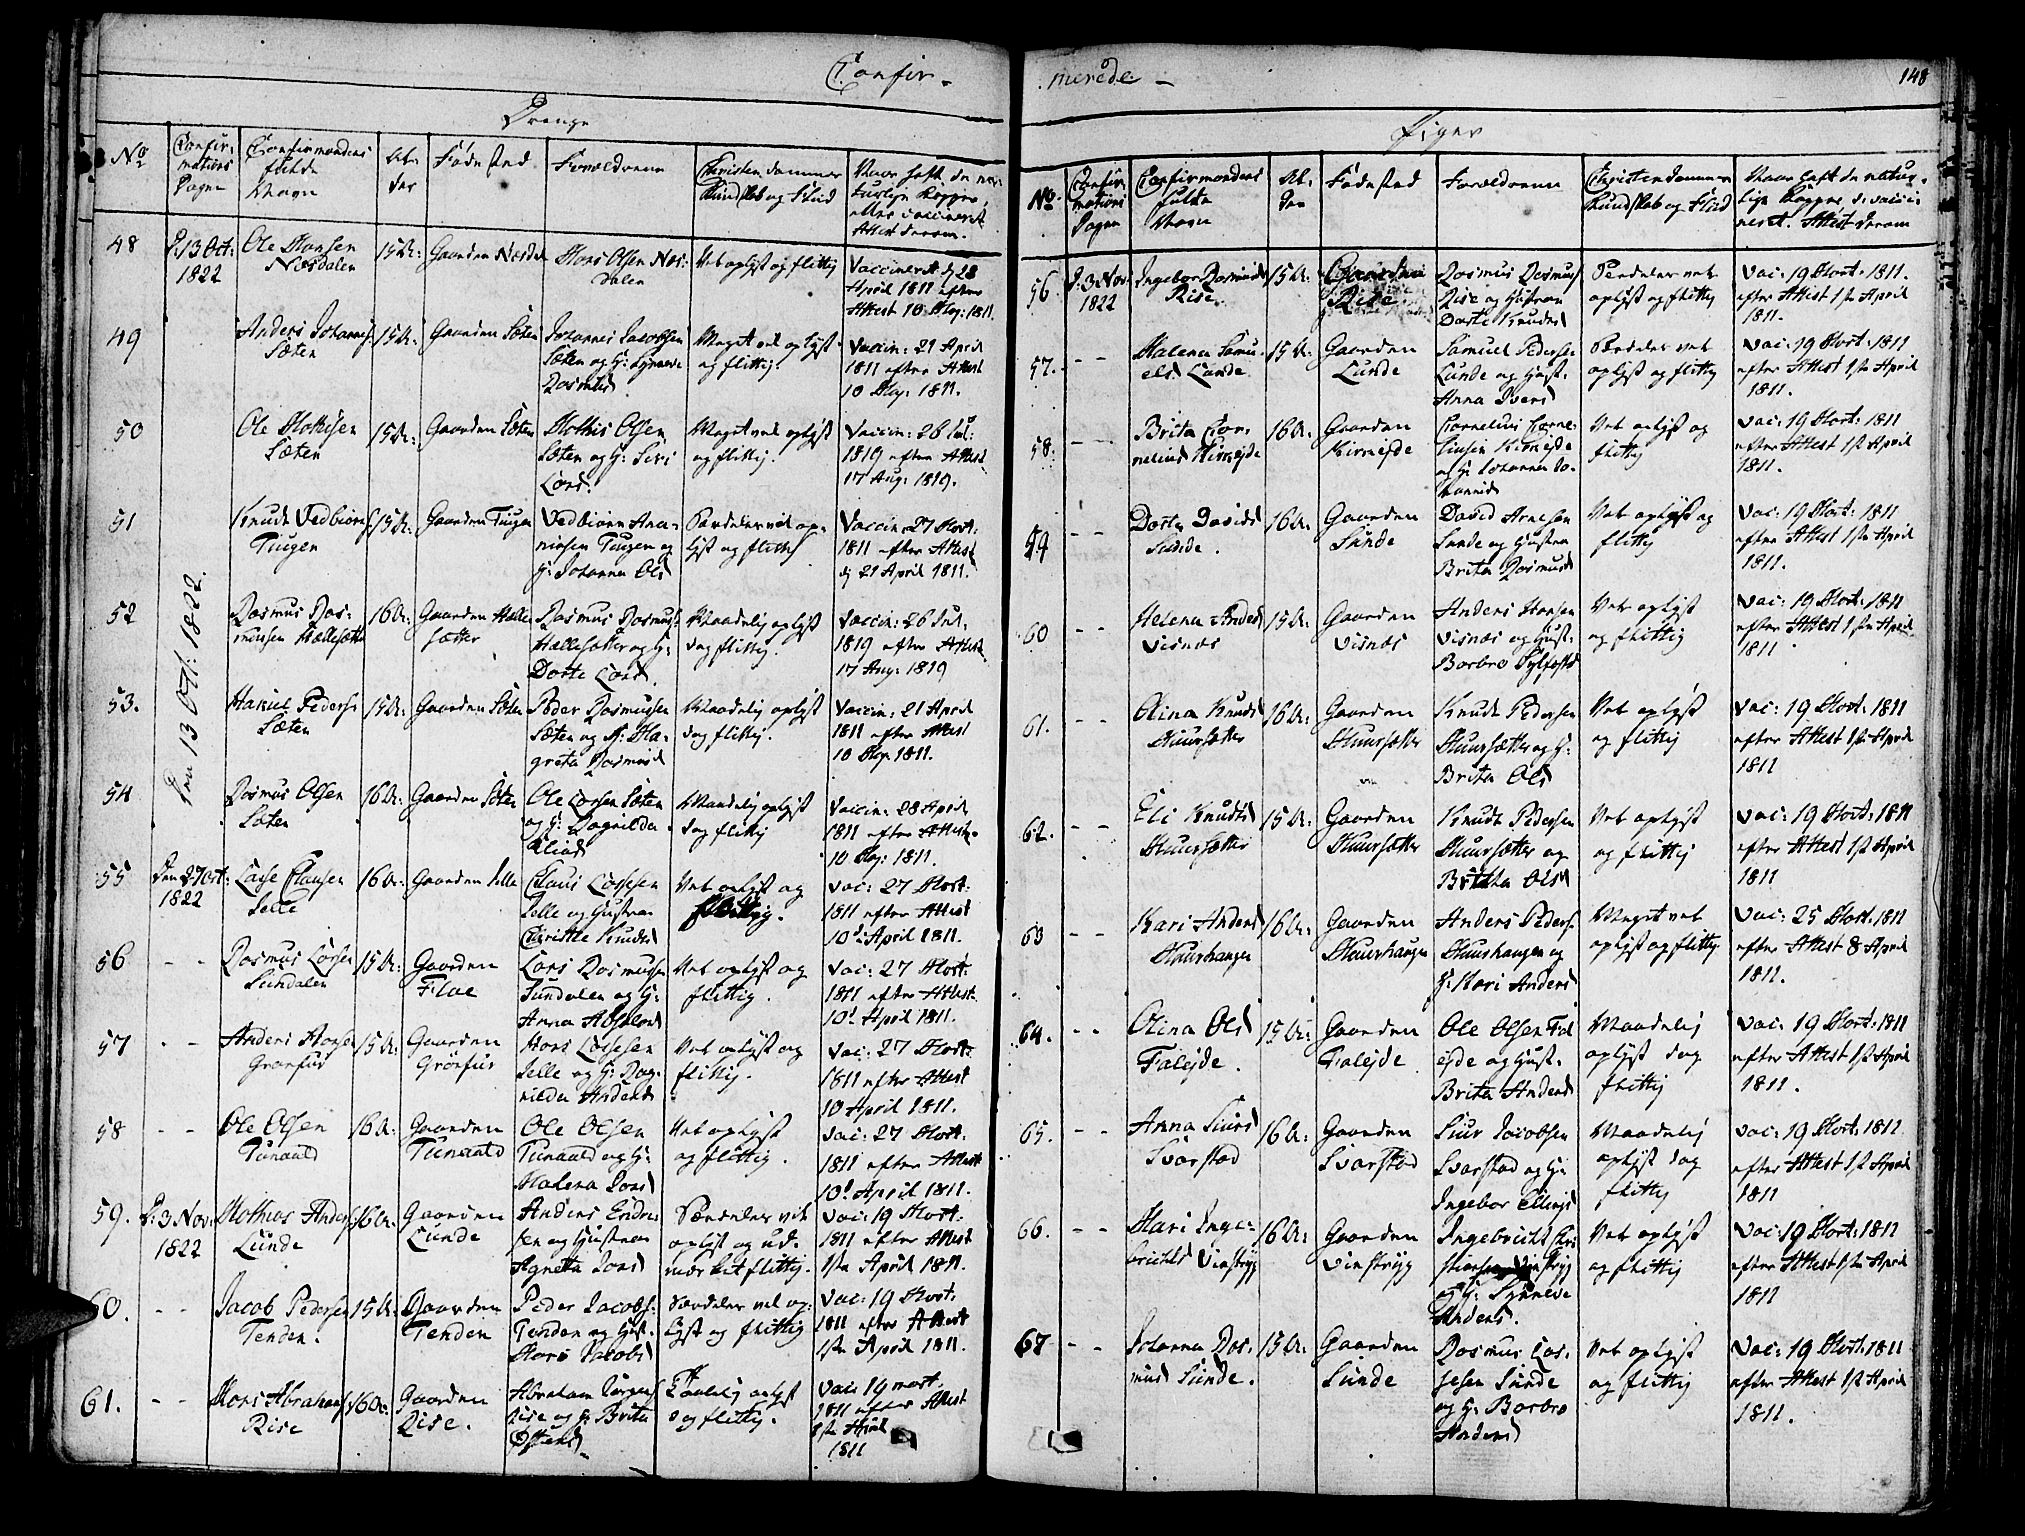 Confir-
merede -
148
Drenge
No
Confir-
mations
Dagen
Confirmandens
fulde
Navn
Al-
der
Fødested
Forældrene
Christendommes
Kundskab og Flid
48
D. 13 Oct:
1822
Ole Hansen
Nesdalen
15 Ar:
Gaarden Nesdal
Hans Olsen Nes-
dalen
Vel oplyst og flittig
Vaccineret d. 28
April 1811 efter
Attest 10 May: 1811.
49
Anders Johannes
Sæten
15 Ar:
Gaarden Sæten
Johannes Jacobsen
Sæten og H: Synneve
Rasmusd
Meget vel oplyst
og flittig.
Vaccin: 21 April
1811 efter Attest
10 May: 1811.
50
Ole Mathisen
Sæten
15 Ar:
Gaarden Sæten
Mathis Olsen
Sæten og H: Siri
Larsd.
Meget vel oplyst
og flittig.
Vaccin: 26 Jul:
1819 efter Attest
17 Aug: 1819.
51
Knud Vedbiørn
Tiugen
15 Ar:
Gaarden Tiugen
Vedbiørn Ana-
niasen Tiugen og
H: Johanna Olsd
Særdeles vel op-
lyst og flittig
Vaccin: 27 Mart:
1811 efter Attest
d. 21 April 1811.
Den 13 Oct: 1822.
52
Rasmus Ras-
musen Hællesætter
16 Ar:
Gaarden Hælle
sætter
Rasmus Rasmus:
Hællesætter og H:
Dorte Larsd.
Maadelig oplyst
dog flittig.
Vaccin: 26 Jul.
1819 efter Attest
17 Aug: 1819
53.
Hakiel Peders:
Sæten
15 Ar:
Gaarden Sæten
Peder Rasmusen
Sæten og H: Ma-
greta Rasmusd
Maadelig oplyst
dog flittig.
Vaccin: 21 April
1811 efter Attest
10 May. 1811.
54
Rasmus Olsen
Sæten
16 Ar:
Gaarden Sæten
Ole Larsen Sæten
og H: Ragnilda
Eliasd
Maadelig oplyst
dog flittig
Vaccin: 28 April
1811 efter Attest
10 May: 1811.
55
Den 27 Oct:
1822
Lasse Clausen
Selle
16 Ar:
Gaarden Selle
Claus Lassesen
Selle og Hustrue
Christle Knudsd
Vel oplyst og
flittig.
Vac: 27 Mart:
1811 efter Attest
10d: April 1811.
56
- -
Rasmus Larsen
Sundalen
15 Ar:
Gaarden
Floe
Lars Rasmusen
Sundalen og H:
Anna Absalonsd
Vel oplyst og
flittig.
Vac: 27 Mart:
1811 efter Attest
10d April 1811.
57
- -
Anders Hansen
Grønfur
15 Ar:
Gaarden
Grønfur
Hans Lassesen
Selle og H: Rag-
nilda Andersd
Vel oplyst og
flittig.
Vac: 27 Mart:
1811 efter Attest
10 April 1811.
58
- -
Ole Olsen
Tunaald
16 Ar:
Gaarden
Tunaald
Ole Olsen
Tunaald og H:
Malena Larsd
Vel oplyst
og flittig.
Vac: 27 Mart:
1811 efter Attest
10d April 1811.
59.
D: 3 Nov:
1822
Mathias Anders
Lunde
16 Ar:
Gaarden
Lunde
Anders Endre-
sen og Hustrue
Agneta Larsd
Særdeles vel
oplyst og ud-
mærket flittig.
Vac: 19 Mart:
1811 efter Attest
1ste April 1811.
60.
- -
Jacob Pedersen
Tenden.
15 Ar:
Gaarden
Tenden
Peder Jacobs:
Tenden og Hust.
Mari Jacobsd
Særdeles vel op-
lyst og flittig
Vac: 19 Mart:
1811 efter Attest
1ste April 1811.
61.
- -
Mons Abrahams
Rise
16 Ar:
Gaarden
Rise.
Abraham Jørgens
Rise og H: Brita
Østensd
oplyst
og flittig.
Vac: 19 mart.
1811 efter Attest
1ste April
1811
Piger
No.
Confir-
mations
Dagen
Confirmandens
fulde
Navn
Al-
der
Fødested
Forældrene
Christendommes
Kundskab og Flid
Naar haft de natur-
lige Kopper, el: vacci-
neret. Attest derom
56
D. 3 Nov.
1822
Ingebor Rasmusd
Rise.
15 Ar:
Gaarden
Rise
Rasmus Rasmus
Rise og Hustrue
Dorte Knudsd
Særdeles vel
oplyst og flittig
Vac: 19 Mart: 1811.
efter Attest 1ste April
1811.
57.
- -
Malena Samu-
elsd Lunde
15 Ar:
Gaarden
Lunde
Samuel Pedersen
Lunde og Hust.
Anna Iversd
Særdeles vel
oplyst og flittig
Vac: 19 Mart: 1811
efter Attest 1ste April
1811.
58.
- -
Brita Cor-
neliusd Kirneyde
16 Ar:
Gaarden
Kirneyde
Cornelius Corne-
liusen Kirneyde
og H: Johanna Jo-
hannisd
Vel oplyst og
flittig
Vac: 19 Mart: 1811
efter Attest 1ste April
1811.
59
- -
Dorte Davidsd
Sunde.
16 Ar:
Gaarden
Sunde
David Arnesen
Sunde og Hustrue
Brita Rasmusd
Vel oplyst og
flittig
Vac: 19 Mart: 1811
efter Attest 1ste April
1811.
60
- -
Helena Andersd
Visnes
15 Ar:
Gaarden
Visnæs
Anders Hansen
Visnæs og Hust:
Barbro Sylfestsd
Vel oplyst
og flittig
Vac: 19 Mart: 1811
efter Attest 1ste April
1811.
61.
- -
Olina Knudsd
Muursætter
16 Ar:
Gaarden
Muursætter
Knud Pedersen
Muursætter og H:
Brita Olsd
Vel oplyst
og flittig
Vac: 19 Mart: 1811
efter Attest 1ste April
1811
62.
- -
Eli Knudsd
Muursætter
15 Ar:
Gaarden
Muursætter
Knud Pedersen
Muursætter og
Britha Olsd
Vel oplyst
og flittig
Vac: 19 Mart: 1811
efter Attest 1ste April
1811
63
- -
Kari Andersd
Muurhaugen
16 Ar:
Gaarden
Muurhaugen
Anders Peders:
Muurhaugen og
H: Mari Andersd
Meget vel
oplyst og flittig
Vac: 25 Mart: 1811
efter Attest 8 April
1811.
64.
- -
Olina Olsd
Faleyde.
15 Ar:
Gaarden
Faleyde
Ole Olsen Fal
eyde og Hust.
Brita Andersd
Maadelig
oplyst dog
flittig
Vac: 19 Mart: 1811
efter Attest 1ste April
1811.
65.
- -
Anna Siursd
Svarstad
16 Ar:
Gaarden
Svarstad
Siur Jacobsen
Svarstad og H:
Ingebor Ellingsd
Maadelig
oplyst dog
flittig
Vac: 19 Mart: 1811.
efter Attest 1ste April
1811
66.
- -
Mari Inge-
brichtsd Vinstryg
16 Ar:
Gaarden
Vinstryg
Ingebricht Chri
stiansen Vinstryg
og H: Synneve
Andersd.
Vel oplyst
og flittig
Vac: 19 Mart: 1811
efter Attest 1ste April
1811
67
- -
Johanna Ras-
musd Sunde.
15 Ar:
Gaarden
Sunde
Rasmus Las-
sesen Sunde
og H: Barbro
Andersd
Vel oplyst
og flittig
Vac: 19 Mart: 1811
efter Attest 1ste April
1811.